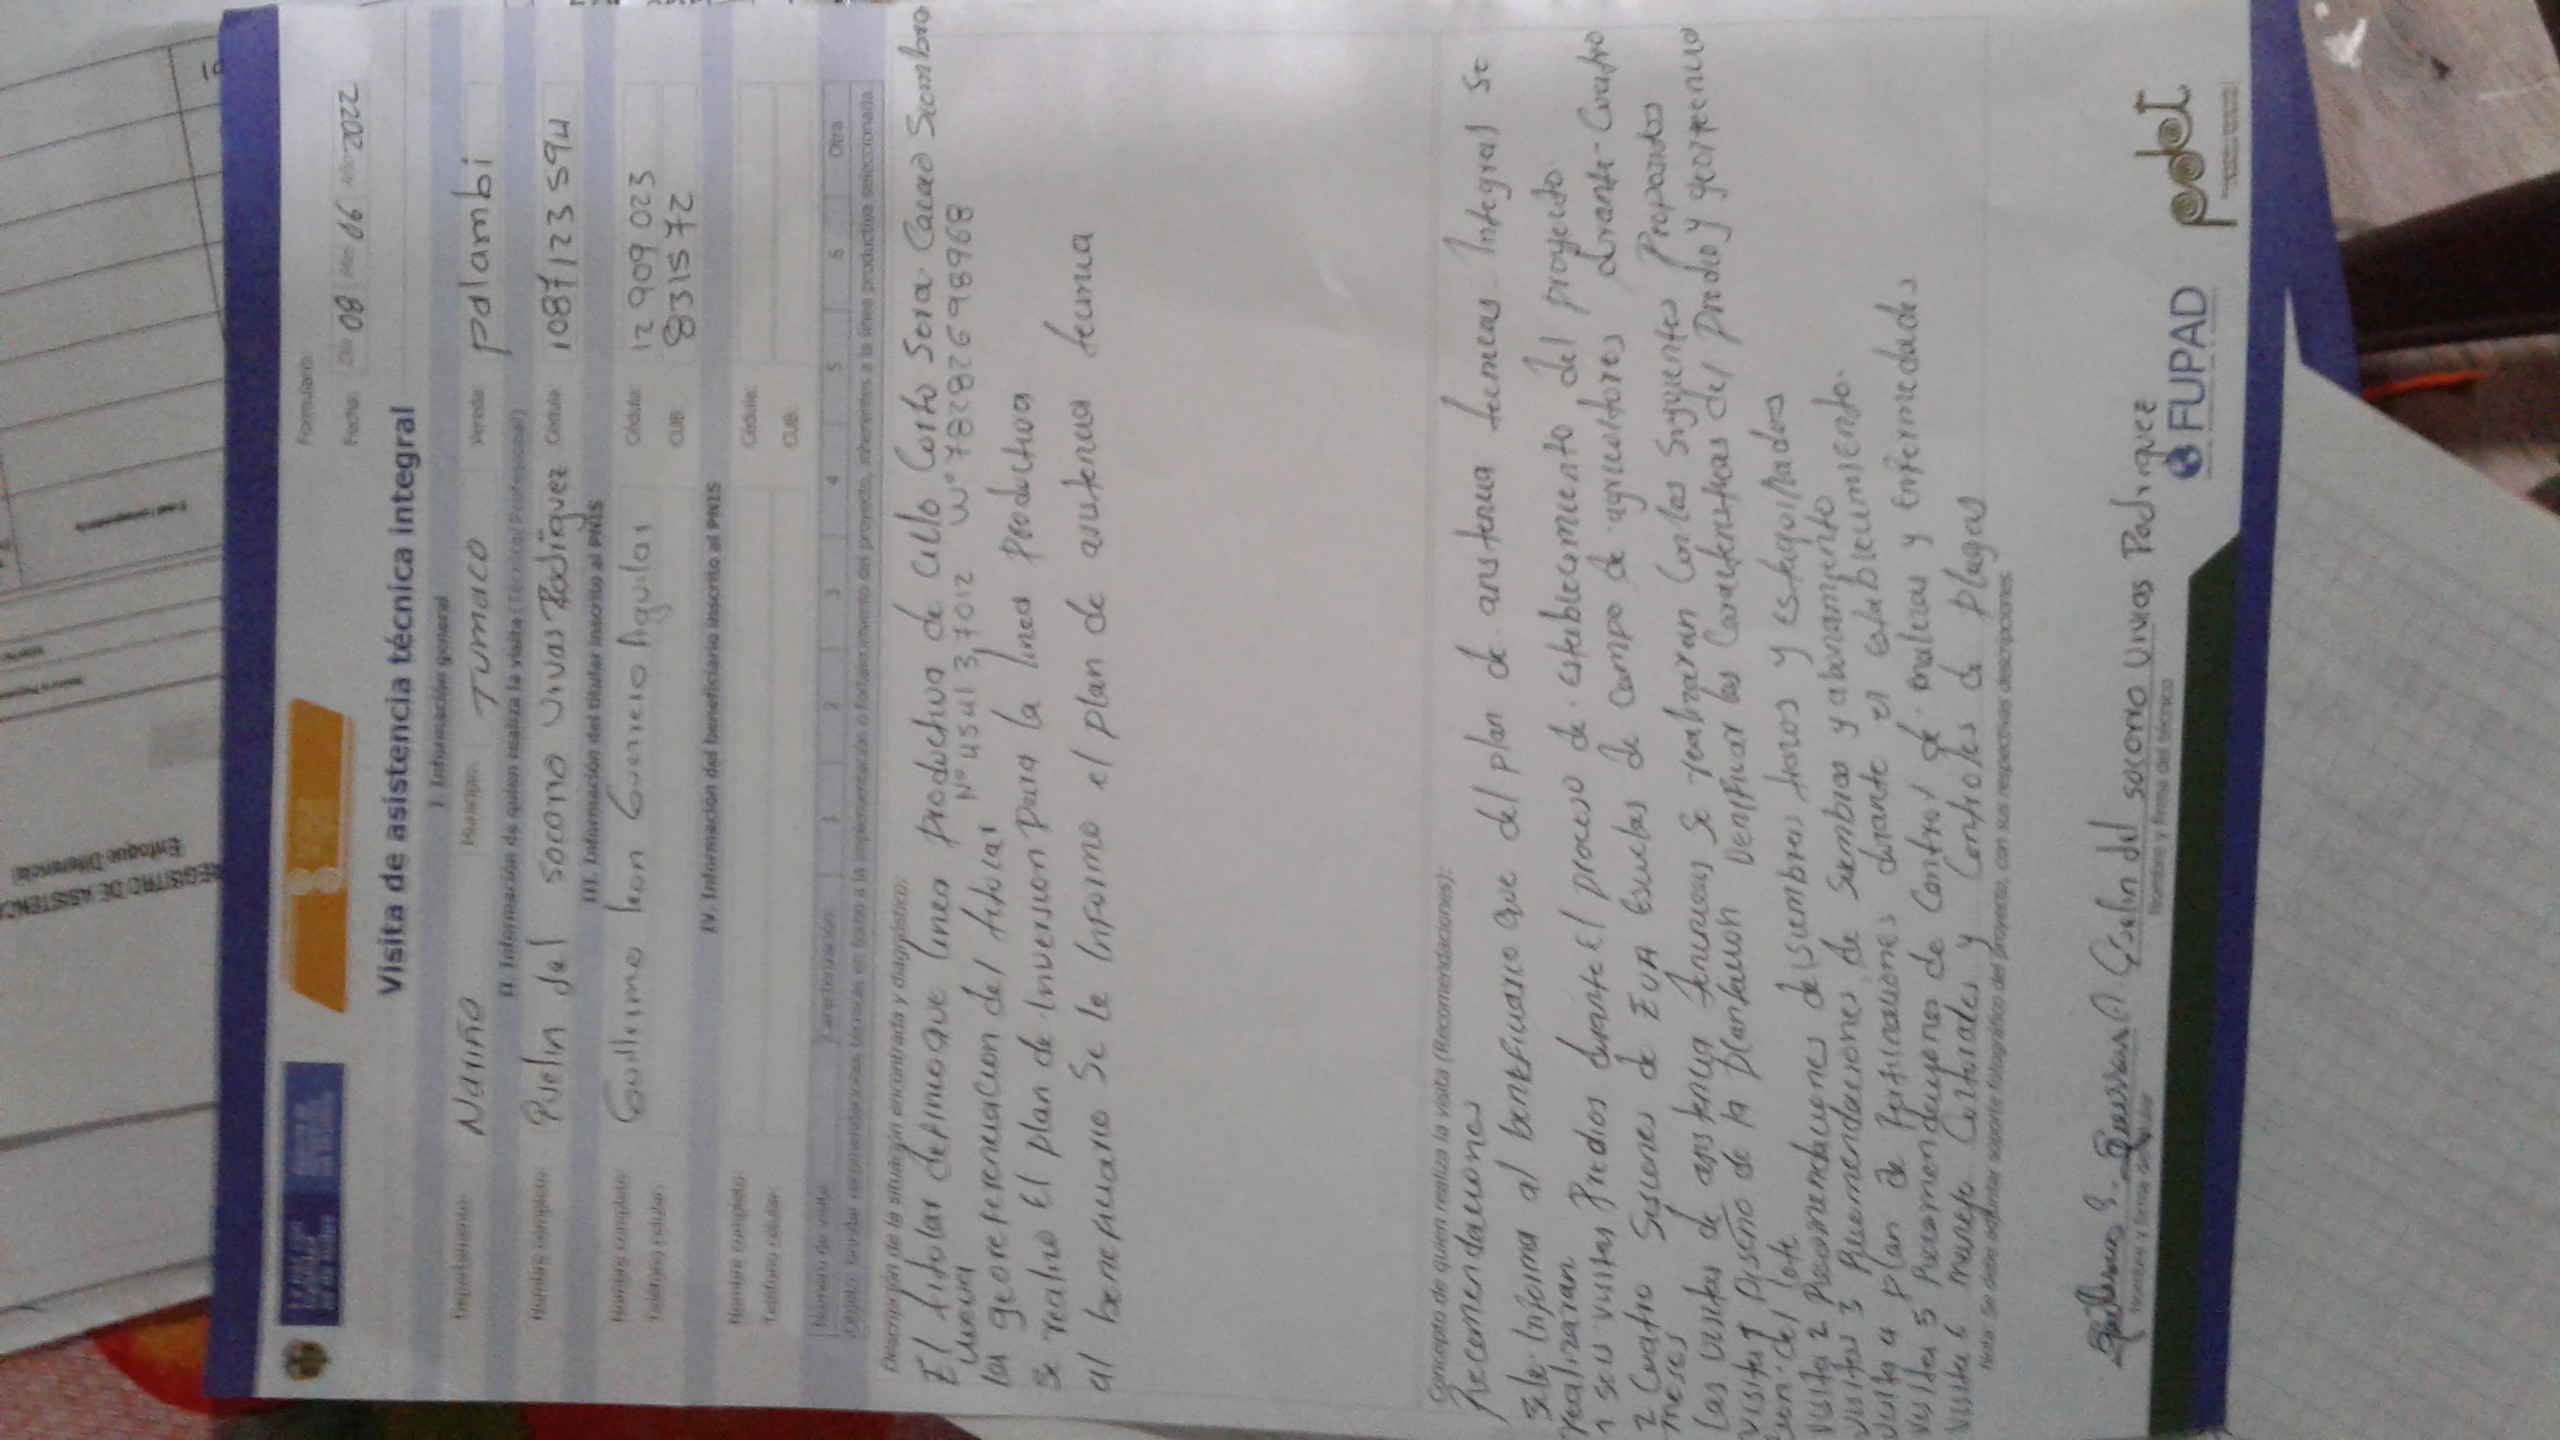 Formulario:
Fecha: Día 08 Mes 06 Año 2022
Visita de asistencia técnica integral
I. Información general
Departamento: Nariño Municipio: Tumaco Vereda: palambi
II. Información de quien realiza la visita (Técnico/Profesional)
Nombre completo: del socorro vivas Rodríguez Cédula: 1087123594
III. Información del titular inscrito al PNIS
Nombre completo: Guillermo leon Guerrero Aguilar Cédula: 12909023
Teléfono celular: CUB: 8315572
IV. Información del beneficiario inscrito al PNIS
Nombre completo: Cédula:
Teléfono celular: CUB:
Número de visita Caracterización: 1 2 3 4 5 6 Otra
Objeto: brindar recomendaciones técnicas en torno a la implementación o fortalecimiento del proyecto, inherentes a la línea productiva seleccionada.
Descripción de la situación encontrada y diagnóstico:
El titular definio que linea productiva de ciclo corto sera cacao siembra
nueva N° 1.54137012 W° 78.282698968
la georeferenciacion del titular
se realizo el plan de inversion para la linea productiva
al beneficiario se le informo el plan de asistencia tecnica
Concepto de quien realiza la visita (Recomendaciones):
Recomendaciones
Se le informa al beneficiario que del plan de asistencia tecnicas integral se
realizaran
1 seis visitas Predios durante el proceso de establecimiento del proyecto.
2 Cuatro sesiones de EVA Escuelas de campo de agricultores durante cuatro
meses
Las visitas de asistencia tecnicas se realizaran con los siguientes Propositos
visita 1 Diseño de la plantacion identificar las caracteristicas del Predio y
del lote
visita 2 Recomendaciones de siembras y
visitas 3 Recomendaciones de siembras y abonamiento
visita 4 plan de fertilizaciones durante el establecimiento.
visitas 5 Recomendaciones de control de malezas y enfermedades
visita 6 manejo Culturales y controles de plagas
Nota: Se debe adjuntar soporte fotográfico del proyecto, con sus respectivas descripciones.
del socorro vivas Rodriguez
Nombre y firma del titular Nombre y firma del técnico
FUPAD
pdet
REGISTRO DE ASISTENCIA
Enfoque Diferencial